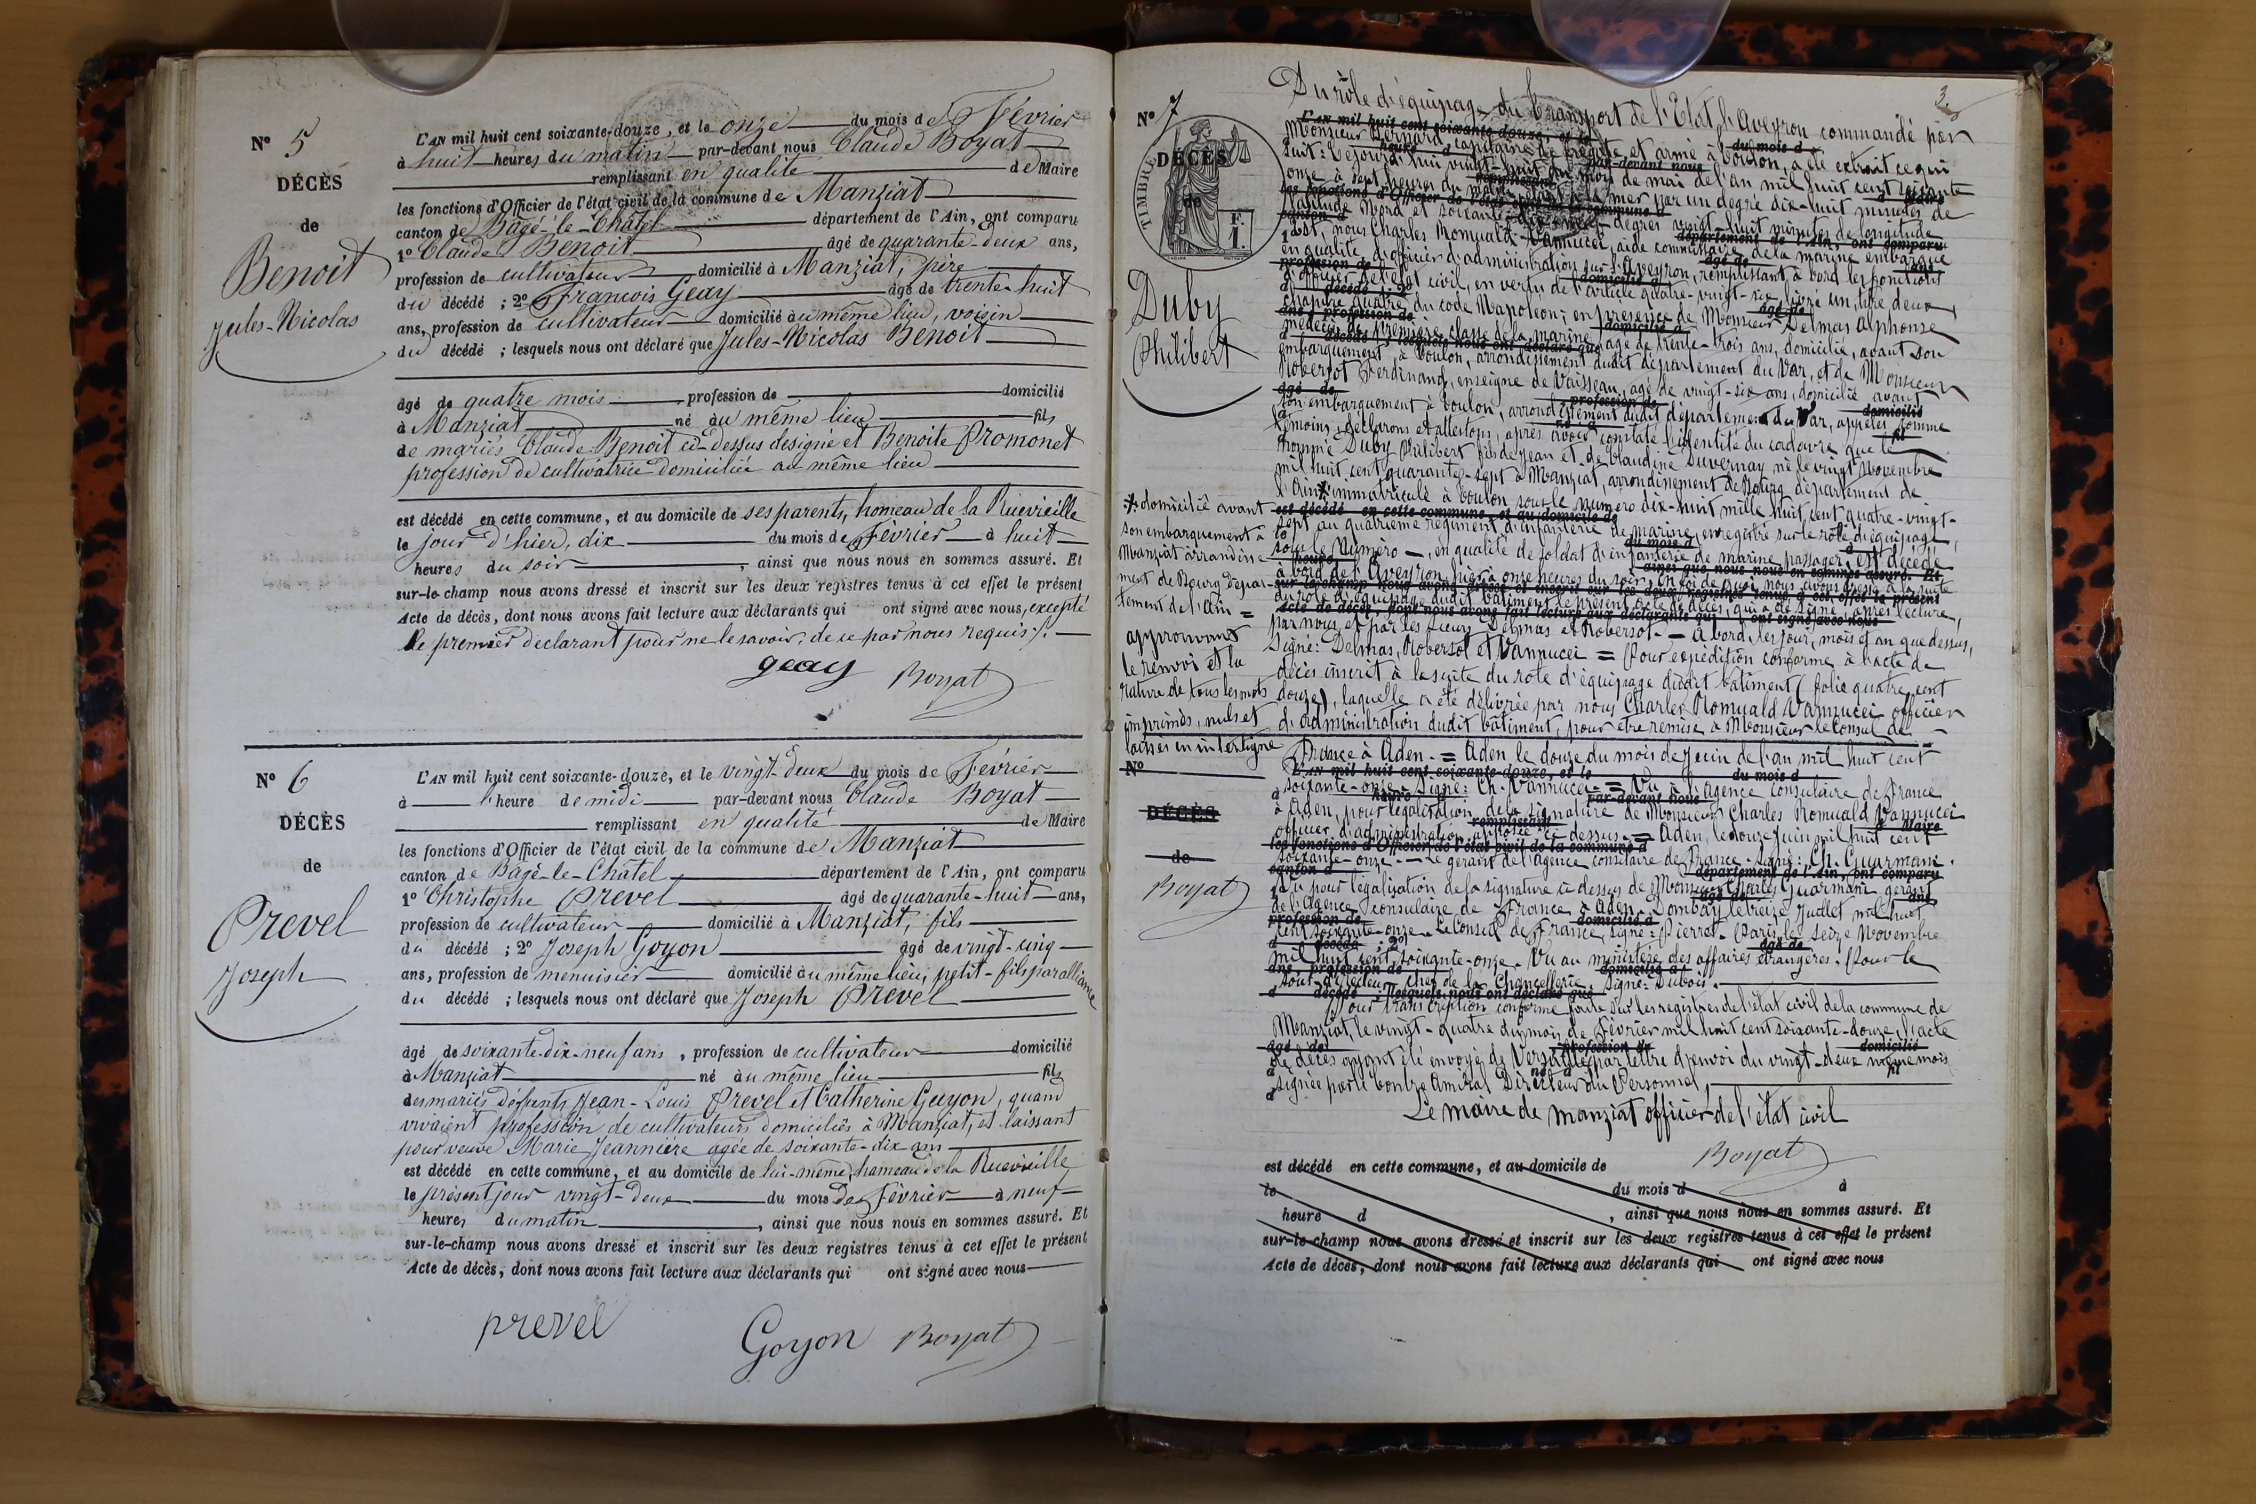 N° 5
DÉCÈS
de
Benoit
Jules-Nicolas
L'AN mil huit cent soixante-douze, et le onze du mois de Février
à huit heures du matin par-devant nous Claude Boyat
remplissant en qualité de Maire
les fonctions d'Officier de l'état civil de la commune de Manziat
canton de Bâgé-le-Châtel département de l'Ain, ont comparu
1° Claude Benoit âgé de quarante-deux ans,
profession de cultivateur domicilié à Manziat, père
du décédé ; 2° François Geay âgé de trente-huit
ans, profession de cultivateur domicilié au même lieu, voisin
du décédé ; lesquels nous ont déclaré que Jules-Nicolas Benoit
âgé de quatre mois profession de domicilié
à Manziat né au même lieu fils
de mariés Claude Benoit ci-dessus désigné et Benoite Promonet
profession de cultivatrice domiciliée au même lieu
est décédé en cette commune, et au domicile de ses parents, hameau de la Ruevieille
le jour d'hier, dix du mois de Février à huit
heures du soir, ainsi que nous nous en sommes assuré. Et
sur-le-champ nous avons dressé et inscrit sur les deux registres tenus à cet effet le présent
Acte de décès, dont nous avons fait lecture aux déclarants qui ont signé avec nous, excepté
le premier déclarant pour ne le savoir, de ce par nous requis.
geay Boyat
N° 6
DÉCÈS
de
Prevel
Joseph
L'AN mil huit cent soixante-douze, et le vingt-deux du mois de Février
à l'heure de midi par-devant nous Claude Boyat
remplissant en qualité de Maire
les fonctions d'Officier de l'état civil de la commune de Manziat
canton de Bâgé-le-Châtel département de l'Ain, ont comparu
1° Christophe Prevel âgé de quarante-huit ans,
profession de cultivateur domicilié à Manziat, fils
du décédé ; 2° Joseph Goyon âgé de vingt-cinq
ans, profession de menuisier domicilié au même lieu, petit-fils par alliance
du décédé ; lesquels nous ont déclaré que Joseph Prevel
âgé de soixante-dix-neuf ans, profession de cultivateur domicilié
à Manziat né au même lieu fils
des mariés défunts Jean-Louis Prevel et Catherine Guyon, quand
vivaient profession de cultivateurs domiciliés à Manziat, et laissant
pour veuve Marie Jeannière agée de soixante-dix ans
est décédé en cette commune, et au domicile de lui-même, hameau de la Ruevieille
le présent jour vingt-deux du mois de Février à neuf
heures du matin, ainsi que nous nous en sommes assuré. Et
sur-le-champ nous avons dressé et inscrit sur les deux registres tenus à cet effet le présent
Acte de décès, dont nous avons fait lecture aux déclarants qui ont signé avec nous
prevel
Goyon Boyat
3
N° 7
DÉCÈS
de
TIMBRE
F.
1.
Duby
Philibert
Du rôle d'équipage du transport de l'Etat l'Aveyron commandé par
Monsieur Bernard, capitaine de frégate et armé à Toulon, a été extrait ce qui
suit: Cejourd'hui vingt-huit du mois de mai de l'an mil huit cent soixante
onze à sept heures du matin, étant à la mer par un degré dix-huit minutes de
latitude Nord et soixante degrés vingt-huit minutes de longitude
Est, nous Charles Romuald Vannucci, aide commissaire de la marine embarqué
en qualité d'officier d'administration sur l'Aveyron, remplissant à bord les fonctions
d'officier de l'état civil, en vertu de l'article quatre-vingt-six livre un, titre deux,
chapitre quatre, du code Napoléon; en présence de Monsieur Delmas Alphonse
médecin de première classe de la marine, agé de trente-trois ans, domicilié, avant son
embarquement, à Toulon, arrondissement dudit département du Var, et de Monsieur
Robersot Ferdinand, enseigne de Vaisseau, agé de vingt-six ans, domicilié avant
son embarquement à Toulon, arrondissement dudit département du Var, appelés comme
témoins, déclarons et attestons, après avoir constaté l'identité du cadavre que le
nommé Duby Philibert fils de Jean et de Claudine Duvernay né le vingt Novembre
mil huit cent quarante-sept à Manziat, arrondissement de Bourg département de
l'Ain* immatriculé à Toulon sous le numéro dix-huit mille huit cent quatre-vingt-
sept au quatrième régiment d'infanterie de marine, enregistré sur le rôle d'équipage,
sous le Numéro —, en qualité de soldat d'infanterie de marine passager, est décédé
à bord de l'Aveyron, hier à onze heures du soir, en foi de quoi nous avons dressé à la suite
du rôle d'équipage dudit bâtiment le présent acte de décès, qui a été signé, après lecture,
par nous et par les sieurs Delmas et Robersot. — A bord, les jour, mois et an que dessus,
Signé: Delmas, Robersot et Vannucci = Pour expédition conforme à l'acte de
décès inscrit à la suite du role d'équipage dudit bâtiment (folio quatre cent
douze), laquelle a été délivrée par nous Charles Romuald Vannucci officier
d'administration dudit bâtiment, pour être remise à Monsieur le Consul de
France à Aden. = Aden le douze du mois de Juin de l'an mil huit cent
soixante-onze. Signé: Ch. Vannucci = Vu à l'Agence consulaire de France
à Aden, pour légalisation de la signature de Monsieur Charles Romuald Vannucci
officier d'administration apposée ci-dessus. = Aden, le douze Juin mil huit cent
soixante-onze. — Le gérant de l'Agence consulaire de France. Signé: Ch. Guarmani.
Vu pour légalisation de la signature ci-dessus de Monsieur Charles Guarmani gérant
de l'Agence consulaire de France à Aden. Bombay le treize Juillet mil huit
cent soixante-onze. Le Consul de France, signé: Pierret. Paris, le seize Novembre
mil huit cent soixante-onze. Vu au ministère des affaires étrangères. Pour le
sous-directeur, chef de la Chancellerie. Signé: Dubois.
Pour transcription conforme faite sur les registres de l'état civil de la commune de
Manziat, le vingt-quatre du mois de Février mil huit cent soixante-douze, l'acte
de décès ayant été envoyé de Versailles par lettre d'envoi du vingt-deux même mois
signée par le Contre Amiral Directeur du Personnel,
Le maire de manziat officier de l'état civil
Boyat
* domicilié avant
son embarquement à
Manziat arrondisse-
ment de Bourg dépar-
tement de l'Ain =
approuvant
le renvoi et la
rature de tous les mots
imprimés, nuls et
laissés en interligne
N°
DÉCÈS
de
Boyat
est décédé en cette commune, et au domicile de
le du mois d à
heure d, ainsi que nous nous en sommes assuré. Et
sur-le-champ nous avons dressé et inscrit sur les deux registres tenus à cet effet le présent
Acte de décès, dont nous avons fait lecture aux déclarants qui ont signé avec nous